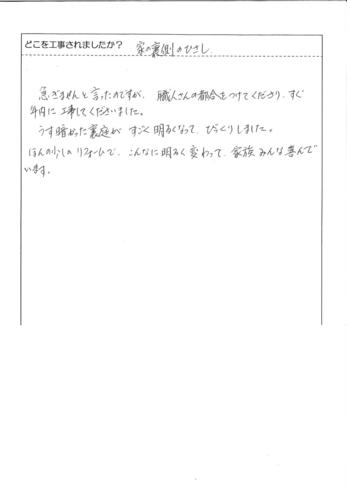 どこを工事されましたか? 家の裏側のひさし.
急ぎませんと言ったのですが、職人さんの都合をつけてくださり、すぐ
年内に工事してくださいました。
うす暗かった裏庭がすごく明るくなって、びっくりしました。
ほんの少しのリフォームで、こんなに明るく変わって、家族みんな喜んで
います。